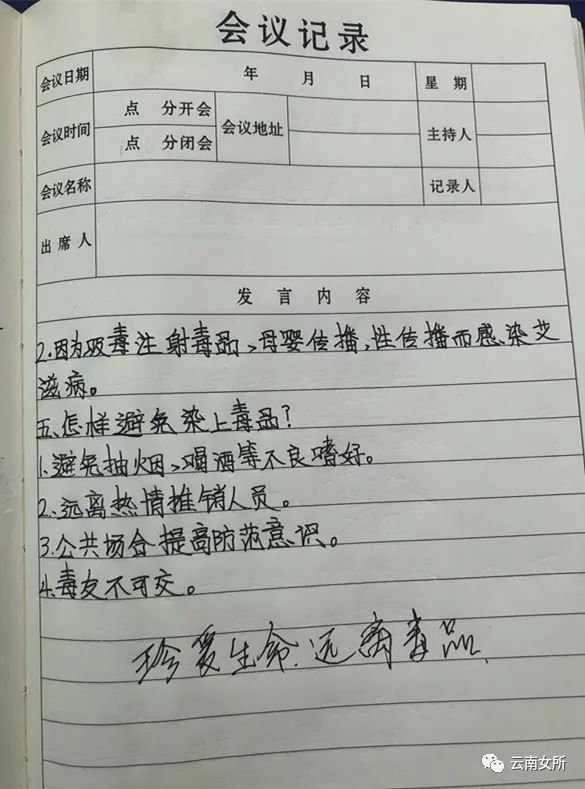 会议记录
会议日期 年 月 日 星期
会议时间 点 分开会 会议地址 主持人
点 分闭会
会议名称 记录人
出席人
发言内容
2.因为吸毒注射毒品、母婴传播,性传播而感染艾
滋病。
五.怎样避免染上毒品?
1.避免抽烟、喝酒等不良嗜好。
2.远离热情推销人员。
3.公共场合提高防范意识。
4.毒友不可交。
珍爱生命.远离毒品.
云南女所